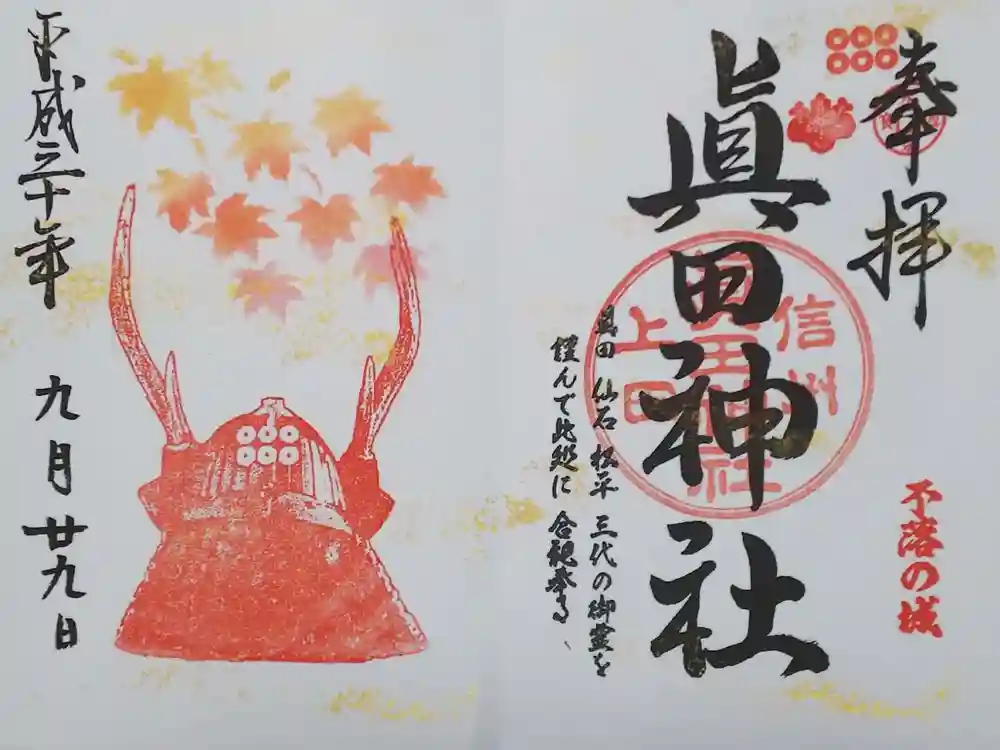 奉拝
不落の城
眞田神社
信州
眞田神社
上田
真田 仙石 松平 三代の御霊を
謹んで此処に 合祀奉る、
平成三十年 九月 廿九日